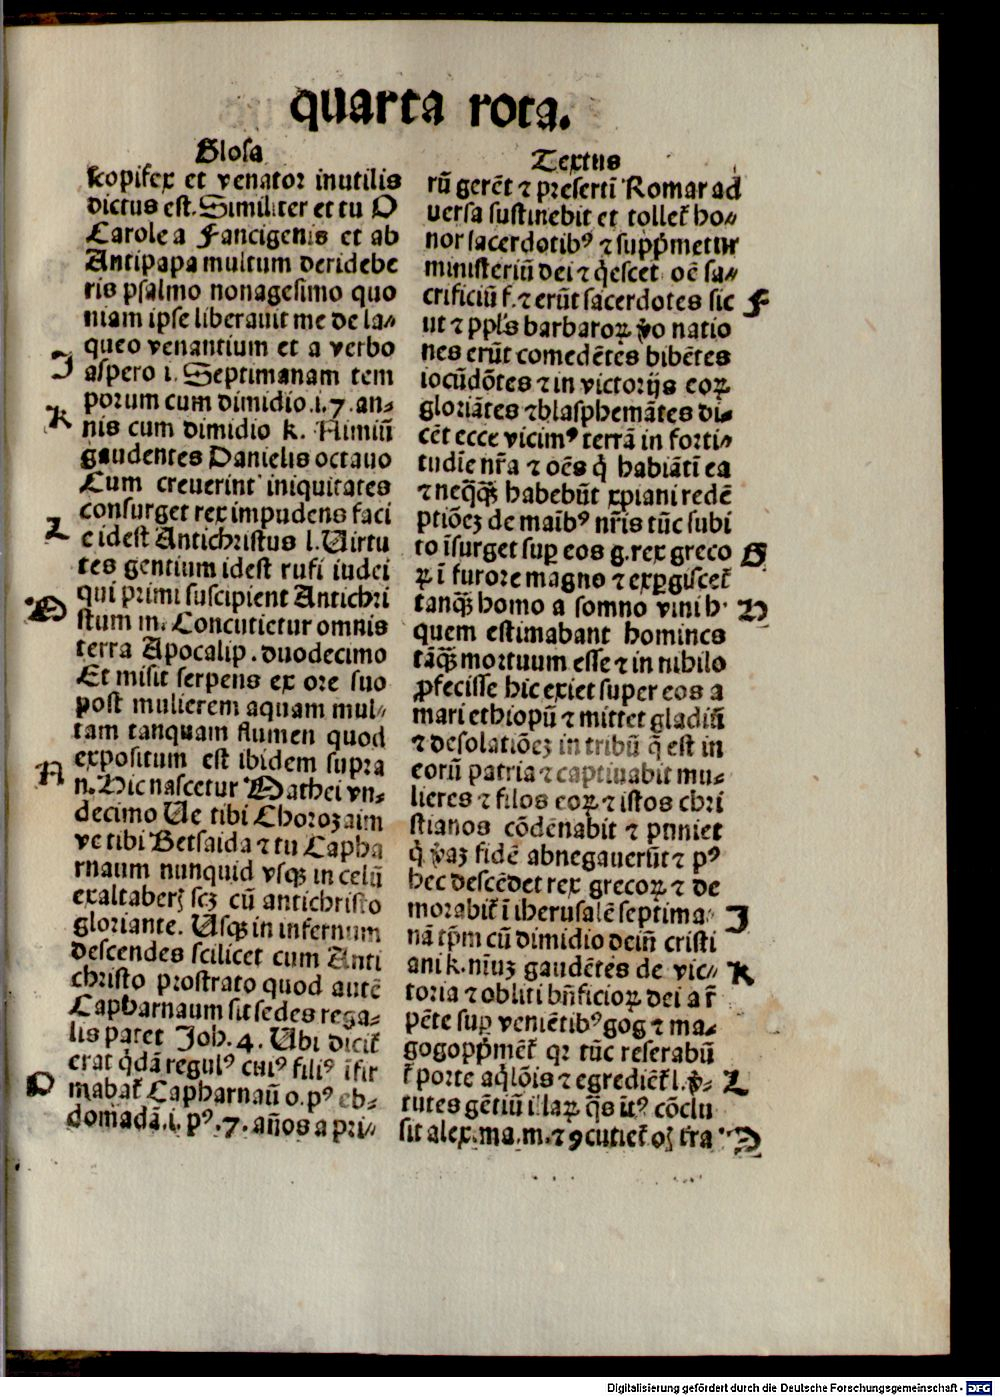 quarta rota.
Glosa
scopifex et venator inutilis
dictus est. Similiter et tu O
Carole a Fancigenis et ab
Antipapa multum deridebe
ris psalmo nonagesimo quo
niam ipse liberauit me de la⸗
queo venantium et a verbo
J
aspero i. Septimanam tem
porum cum dimidio .i. 7. an⸗
K
nis cum dimidio k. Nimiū
gaudentes Danielis octauo
Cum creuerint iniquitates
consurget rex impudens faci
L
e idest Antichristus l. Uirtu
tes gentium idest rufi iudei
qui primi suscipient Antichri
M
stum m. Concutietur omnis
terra Apocalip. duodecimo
Et misit serpens ex ore suo
post mulierem aquam mul⸗
tam tanquam flumen quod
expositum est ibidem supra
N
n. Hic nascetur Mathei vn⸗
decimo Ue tibi Chorozaim
ve tibi Betsaida ⁊ tu Capha
rnaum nunquid vsqꝫ in celū
exaltaberꝭ scꝫ cū antichristo
gloriante. Usqꝫ in infernum
descendes scilicet cum Anti
christo prostrato quod autē
Capharnaum sit sedes rega⸗
lis patet Joh. 4. Ubi dicit̄
erat q̇dā regulꝰ cuiꝰ filiꝰ īfir
O
mabat̄ Capharnaū o. pꝰ eb⸗
domadā .i. pꝰ .7. años a pri⸗
Textus
rū gerēt ⁊ presertī Romar ad
uersa sustinebit et tollet̄ ho⸗
nor sacerdotibꝰ ⁊ supp̄metur
ministeriū dei ⁊ q̇escet oē sa⸗
crificiū f. ⁊ erūt sacerdotes sic
F
ut ⁊ ppl's barbaroꝝ v̊o natio
nes erūt comedētes bibētes
iocūdōtes ⁊ in victorijs eoꝝ
gloriātes ⁊ blasphemātes di⸗
cēt ecce vicimꝰ terrā in forti⸗
tudīe nr̄a ⁊ oēs q̇ habiātī ea
⁊ neq̄qꝫ̄ habebūt xp̄iani redē
ptiōeꝫ de maībꝰ nr̄is tūc subi
to īsurget suꝑ eos g. rex greco
G
ꝝ ī furore magno ⁊ exꝑgiscet̄
tanqꝫ̄ homo a somno vini h.
H
quem estimabant homines
tāqꝫ̄ mortuum esse ⁊ in nihilo
ꝓfecisse hic exiet super eos a
mari ethiopū ⁊ mittet gladiū
⁊ desolatiōeꝫ in tribū q̄ est in
eorū patria ⁊ captiuabit mu⸗
lieres ⁊ filos eoꝝ ⁊ istos chri
stianos cōdēnabit ⁊ puniet
q̇ v̊aꝫ fidē abnegauerūt ⁊ pꝰ
hec descēdet rex grecoꝝ ⁊ de
morabit̄ ī iherusalē septima⸗
J
nā tp̄m cū dimidio dein̄ cristi
ani k. nīuꝫ gaudētes de vic⸗
K
toria ⁊ obliti bn̄ficioꝝ dei a r̄
pēte suꝑ veniētibꝰ gog ⁊ ma⸗
gog opp̄mēt̄ qꝛ tūc reserabū
t̄ porte aq̇lōis ⁊ egrediēt̄ l. v̊⸗
L
tutes gētiū illaꝝ q̄s ītꝰ cōclu
sit alex. ma. m. ⁊ ꝯcutiet̄ oꝫ tr̄a
M
Digitalisierung gefördert durch die Deutsche Forschungsgemeinschaft - DFG